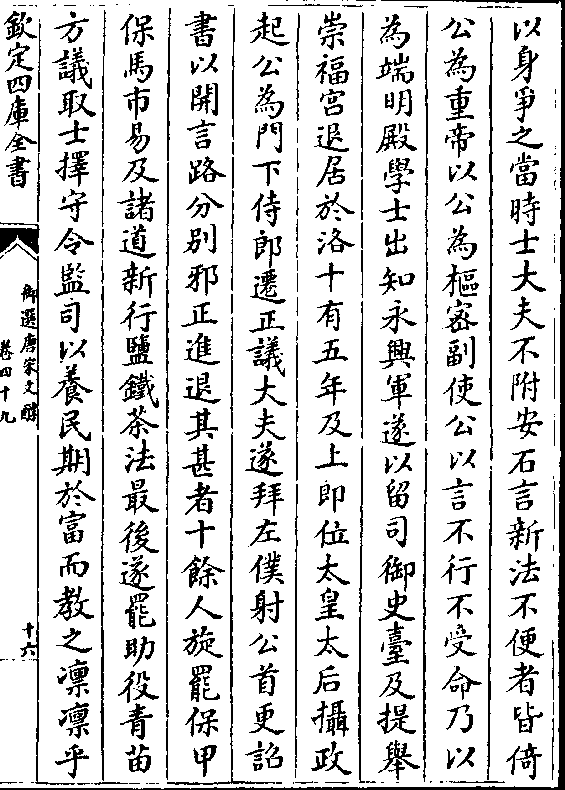 以身爭之當時士大夫不附安石言新法不便者皆倚
公為重帝以公為樞密副使公以言不行不受命乃以
為端明殿學士出知永興軍遂以留司御史臺及提舉
崇福宫退居於洛十有五年及上即位太皇太后攝政
起公為門下侍郎遷正議大夫遂拜左僕射公首更詔
書以開言路分别邪正進退其甚者十餘人旋罷保甲
保馬市易及諸道新行鹽鐵茶法最後遂罷助役青苗
方議取士擇守令監司以養民期於富而教之凛凛乎
欽定四庫全書
御選唐宋文醇
卷四十九
十六